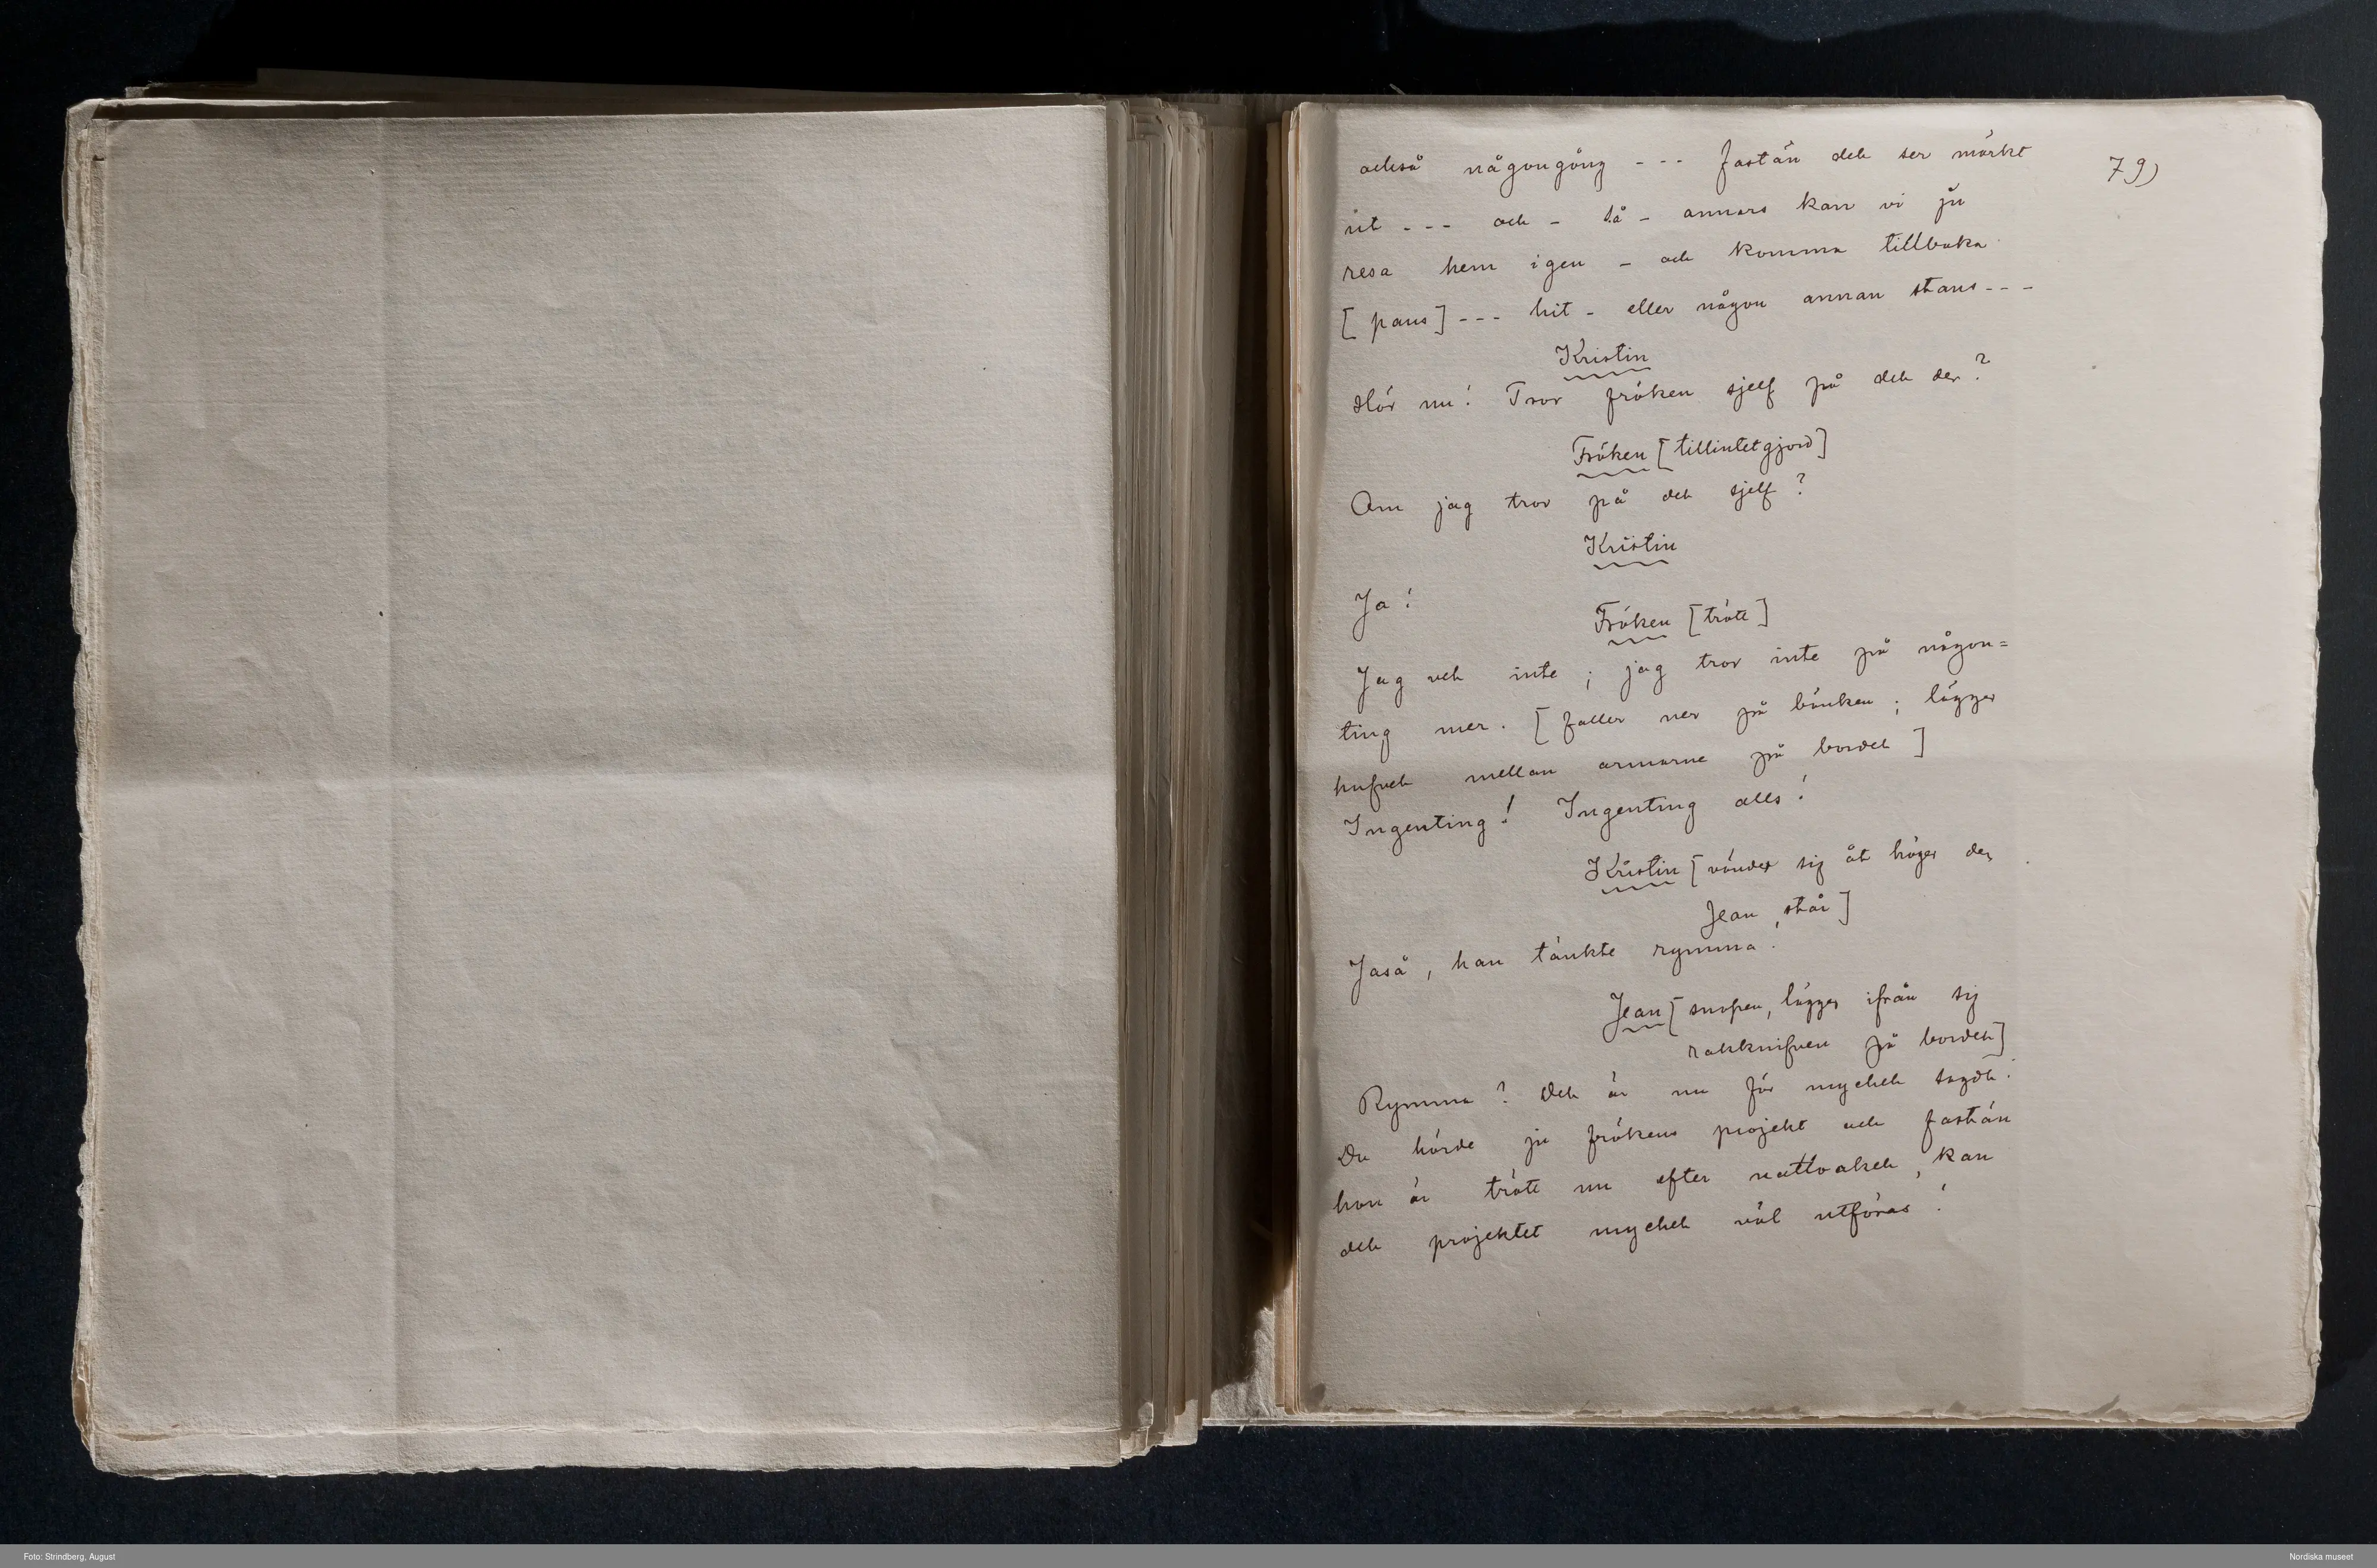 också någongång --- fastän det ser mörkt
79)
ut --- och - så - annars kan vi ju
resa hem igen - och komma tillbaka
[paus] --- hit - eller någon annan stans ---
Kristin
Hör nu! Tror fröken sjelf på det der?
Fröken [tillintetgjord]
Om jag tror på det sjelf?
Kristin
Ja!
Fröken [trött]
Jag vet inte; jag tror inte på någon=
ting mer. [faller ner på bänken; lägger
hufvet mellan armarne på bordet]
Ingenting! Ingenting alls!
Kristin [vänder sig åt höger der
Jean står]
Jaså, han tänkte rymma!
Jean [snopen, lägger ifrån sig
rakknifven på bordet]
Rymma? Det är nu för mycket sagdt.
Du hörde ju frökens projekt och fastän
hon är trött nu efter nattvaket, kan
det projektet mycket väl utföras!
Foto: Strindberg, August
Nordiska museet